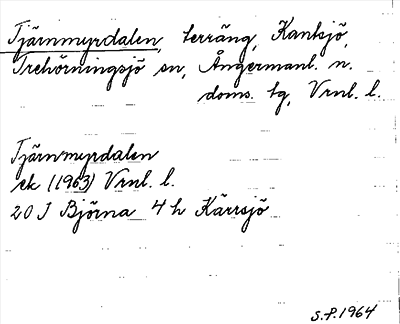 Tjärnmyrdalen, terräng, Kantsjö,
Trehörningsjö sn, Ångermanl. n.
doms. tg, Vrnl. l.
Tjärnmyrdalen
ek (1963) Vrnl. l.
20 J Björna 4 h Kärrsjö
S.P. 1964